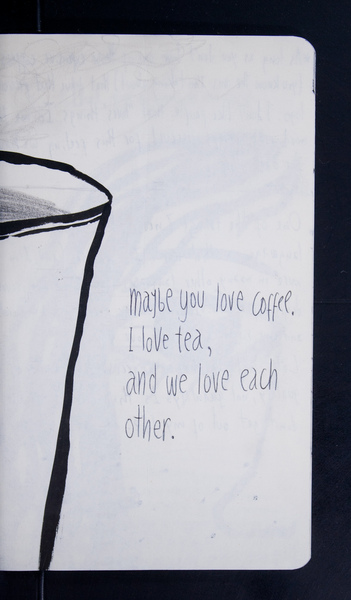 maybe you love coffee.
I love tea,
and we love each
other.